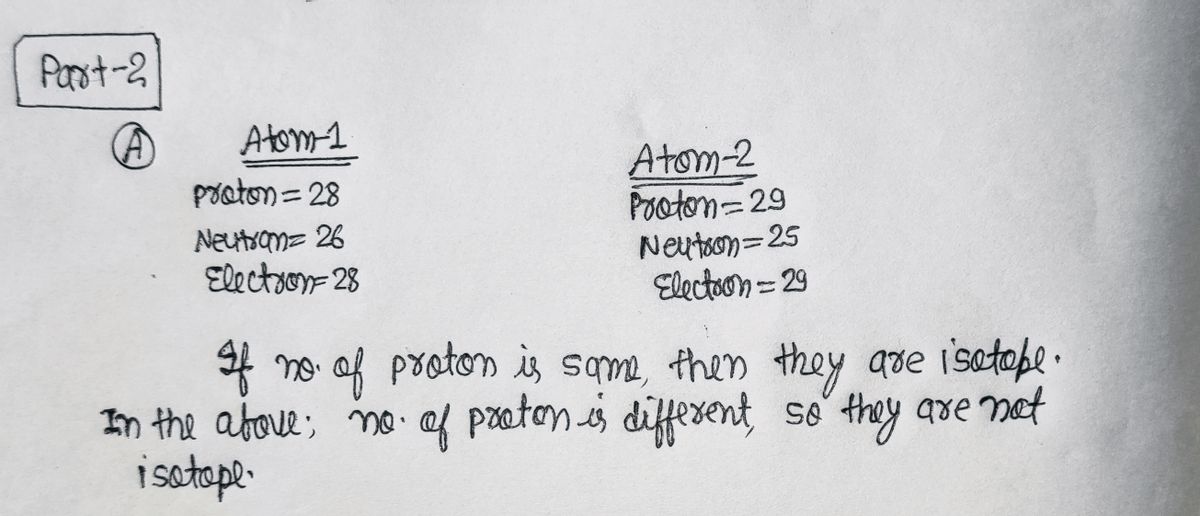 Part-2
A
Atom-1
proton = 28
Neutron = 26
Electron = 28
Atom-2
Proton = 29
Neutron = 25
Electron = 29
If no. of proton is same, then they are isotope.
In the above; no. of proton is different, so they are not
isotope.